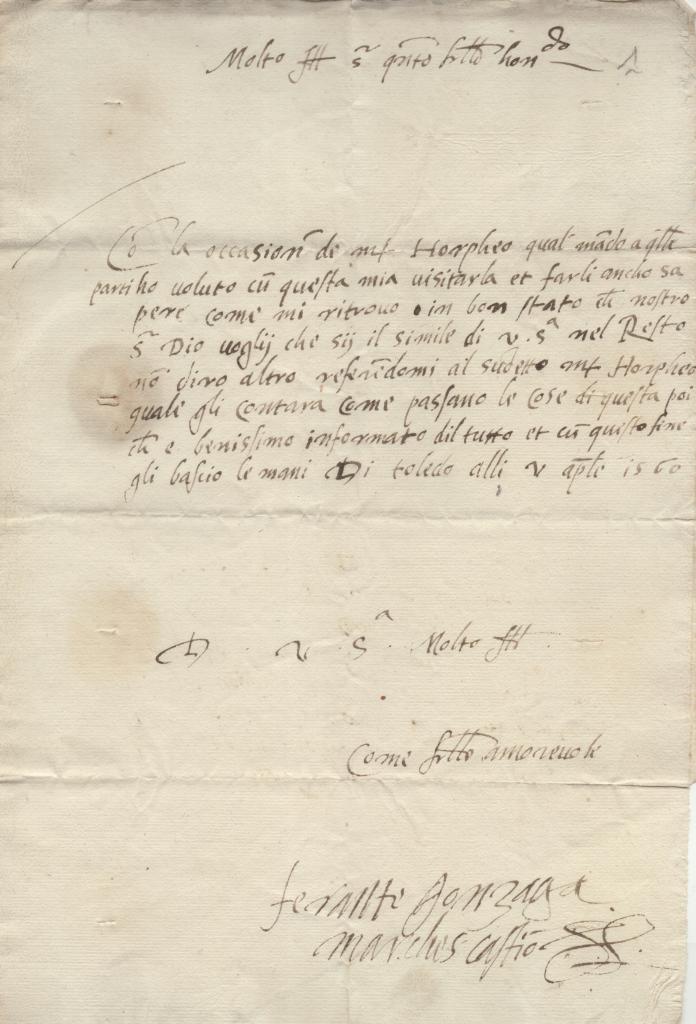 Molto Ill s.r q.nto frllo hon.do
Cō la occasion de m.r Horpheo qual mādo a q.lle
parti ho voluto cū questa mia visitarla et farli ancho sa
pere come mi ritrovo in bon stato ch nostro
s.r Dio voglij che sij il simile di v. s.a nel Resto
nō diro altro referēdomi al sudetto m.r Horpheo
quale gli contara come passano le cose di questa poi
ch e benissimo informato dil tutto et cū questo fine
gli bascio le mani Di toledo alli v ap.le 1560
D. v. s.a Molto Ill
Come frllo amorevole
ferante gonzaga
marches castiō